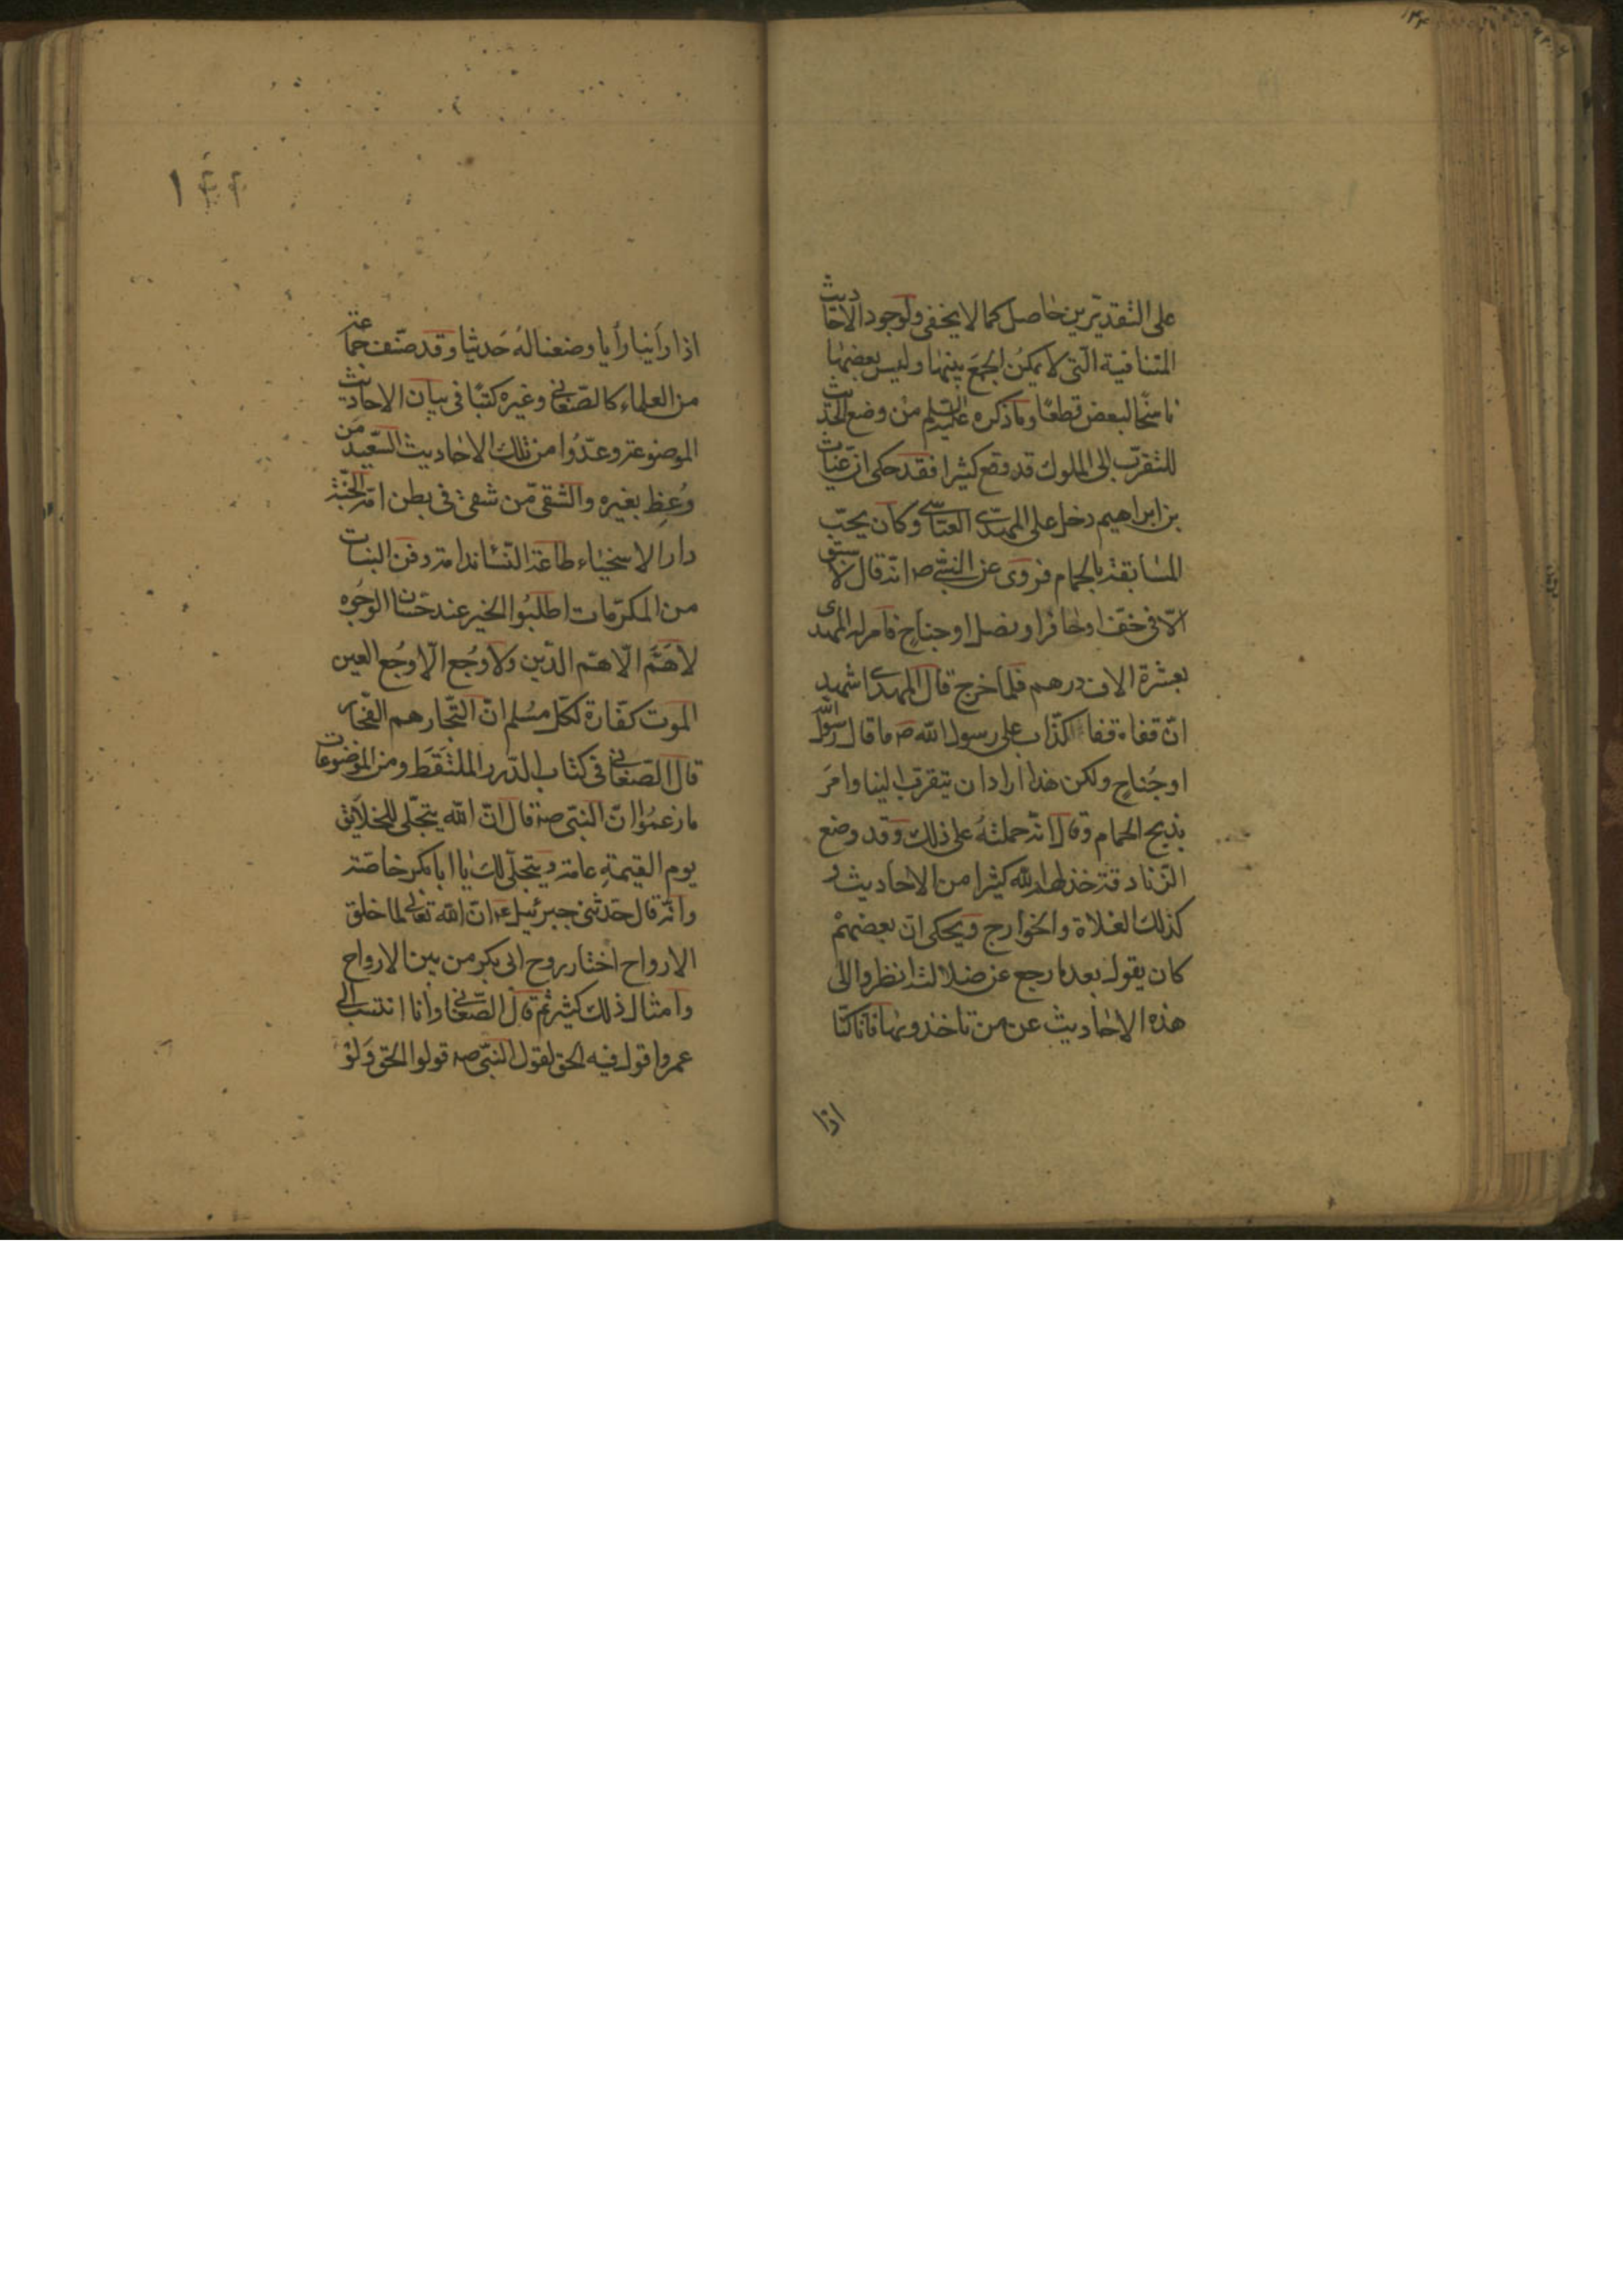 على التقديرين حاصل كما لا يخفى ولوجود الاحاديث
المتنافية الّتى لا يمكن الجمع بينها وليس بعضها
ناسخًا لبعض قطعًا وما ذكره عليه السلم من وضع الحديث
للتقرّب الى الملوك قد وقع كثيرا فقد حكى انّ غياث
بن ابراهيم دخل على المهدى العبّاسى وكان يحبّ
المسابقة بالحمام فروى عن النبىّ ص انّه قال لا سبق
الّا فى خفّ او حافر او نصل او جناح فامر له المهدى
بعشرة الاف درهم فلما خرج قال المهدى اشهد
انّ قفاه قفا كذّاب على رسول الله ص ما قال رسول الله
او جُناح ولكن هذا اراد ان يتقرب الينا وامرَ
بذبح الحمام وقال انّه حملتهُ على ذلك وقد وضع
الزّنادقة خذلهم الله كثيرا من الاحاديث و
كذلك الغلاة والخوارج ويحكى انّ بعضهمْ
كان يقول بعد ما رجع عن ضلالته انظروا الى
هذه الاحاديث عن من تاخذونها فانّا كنّا
اذا
١۴۴
اذا رأينا رأيا وضعنا لهُ حَديثا وقد صنّف جماعة
من العلماء كالصّغانى وغيره كتبًا فى بيان الاحاديث
الموضوعة وعدّوا من تلك الاحاديث السّعيد مَن
وُعِظ بغيره والشّقى مّن شقى فى بطن امّه الجنّة
دار الاسخياء طاعة النّساء ندامة دفن البنات
من المكرّمات اطلبُوا الخير عند حسَان الوجُوه
لا هَمَّ الّا همّ الدّين ولا وجُع الّا وجُع العين
الموت كفّارة لكلّ مسُلم انّ التّجار هم الفجّار
قال الصّغانى فى كتاب الدّرر الملتَقَط ومن الموضوعات
ما زعمُوا انّ النبّى ص قال انّ الله يتجلّى للخلايق
يوم القيمةِ عامة ويتجلّى لك يا ابا بكر خاصّة
وانّه قال حَدثنى جبرئيل ع انّ الله تعالى لما خلق
الارواح اختار روح ابى بكر من بين الارواح
وامثال ذلك كثير ثم قال الصّغانى وانا انتسب الى
عمر واقول فيه الحق لقول النبّى ص قولوا الحق وَلوْ